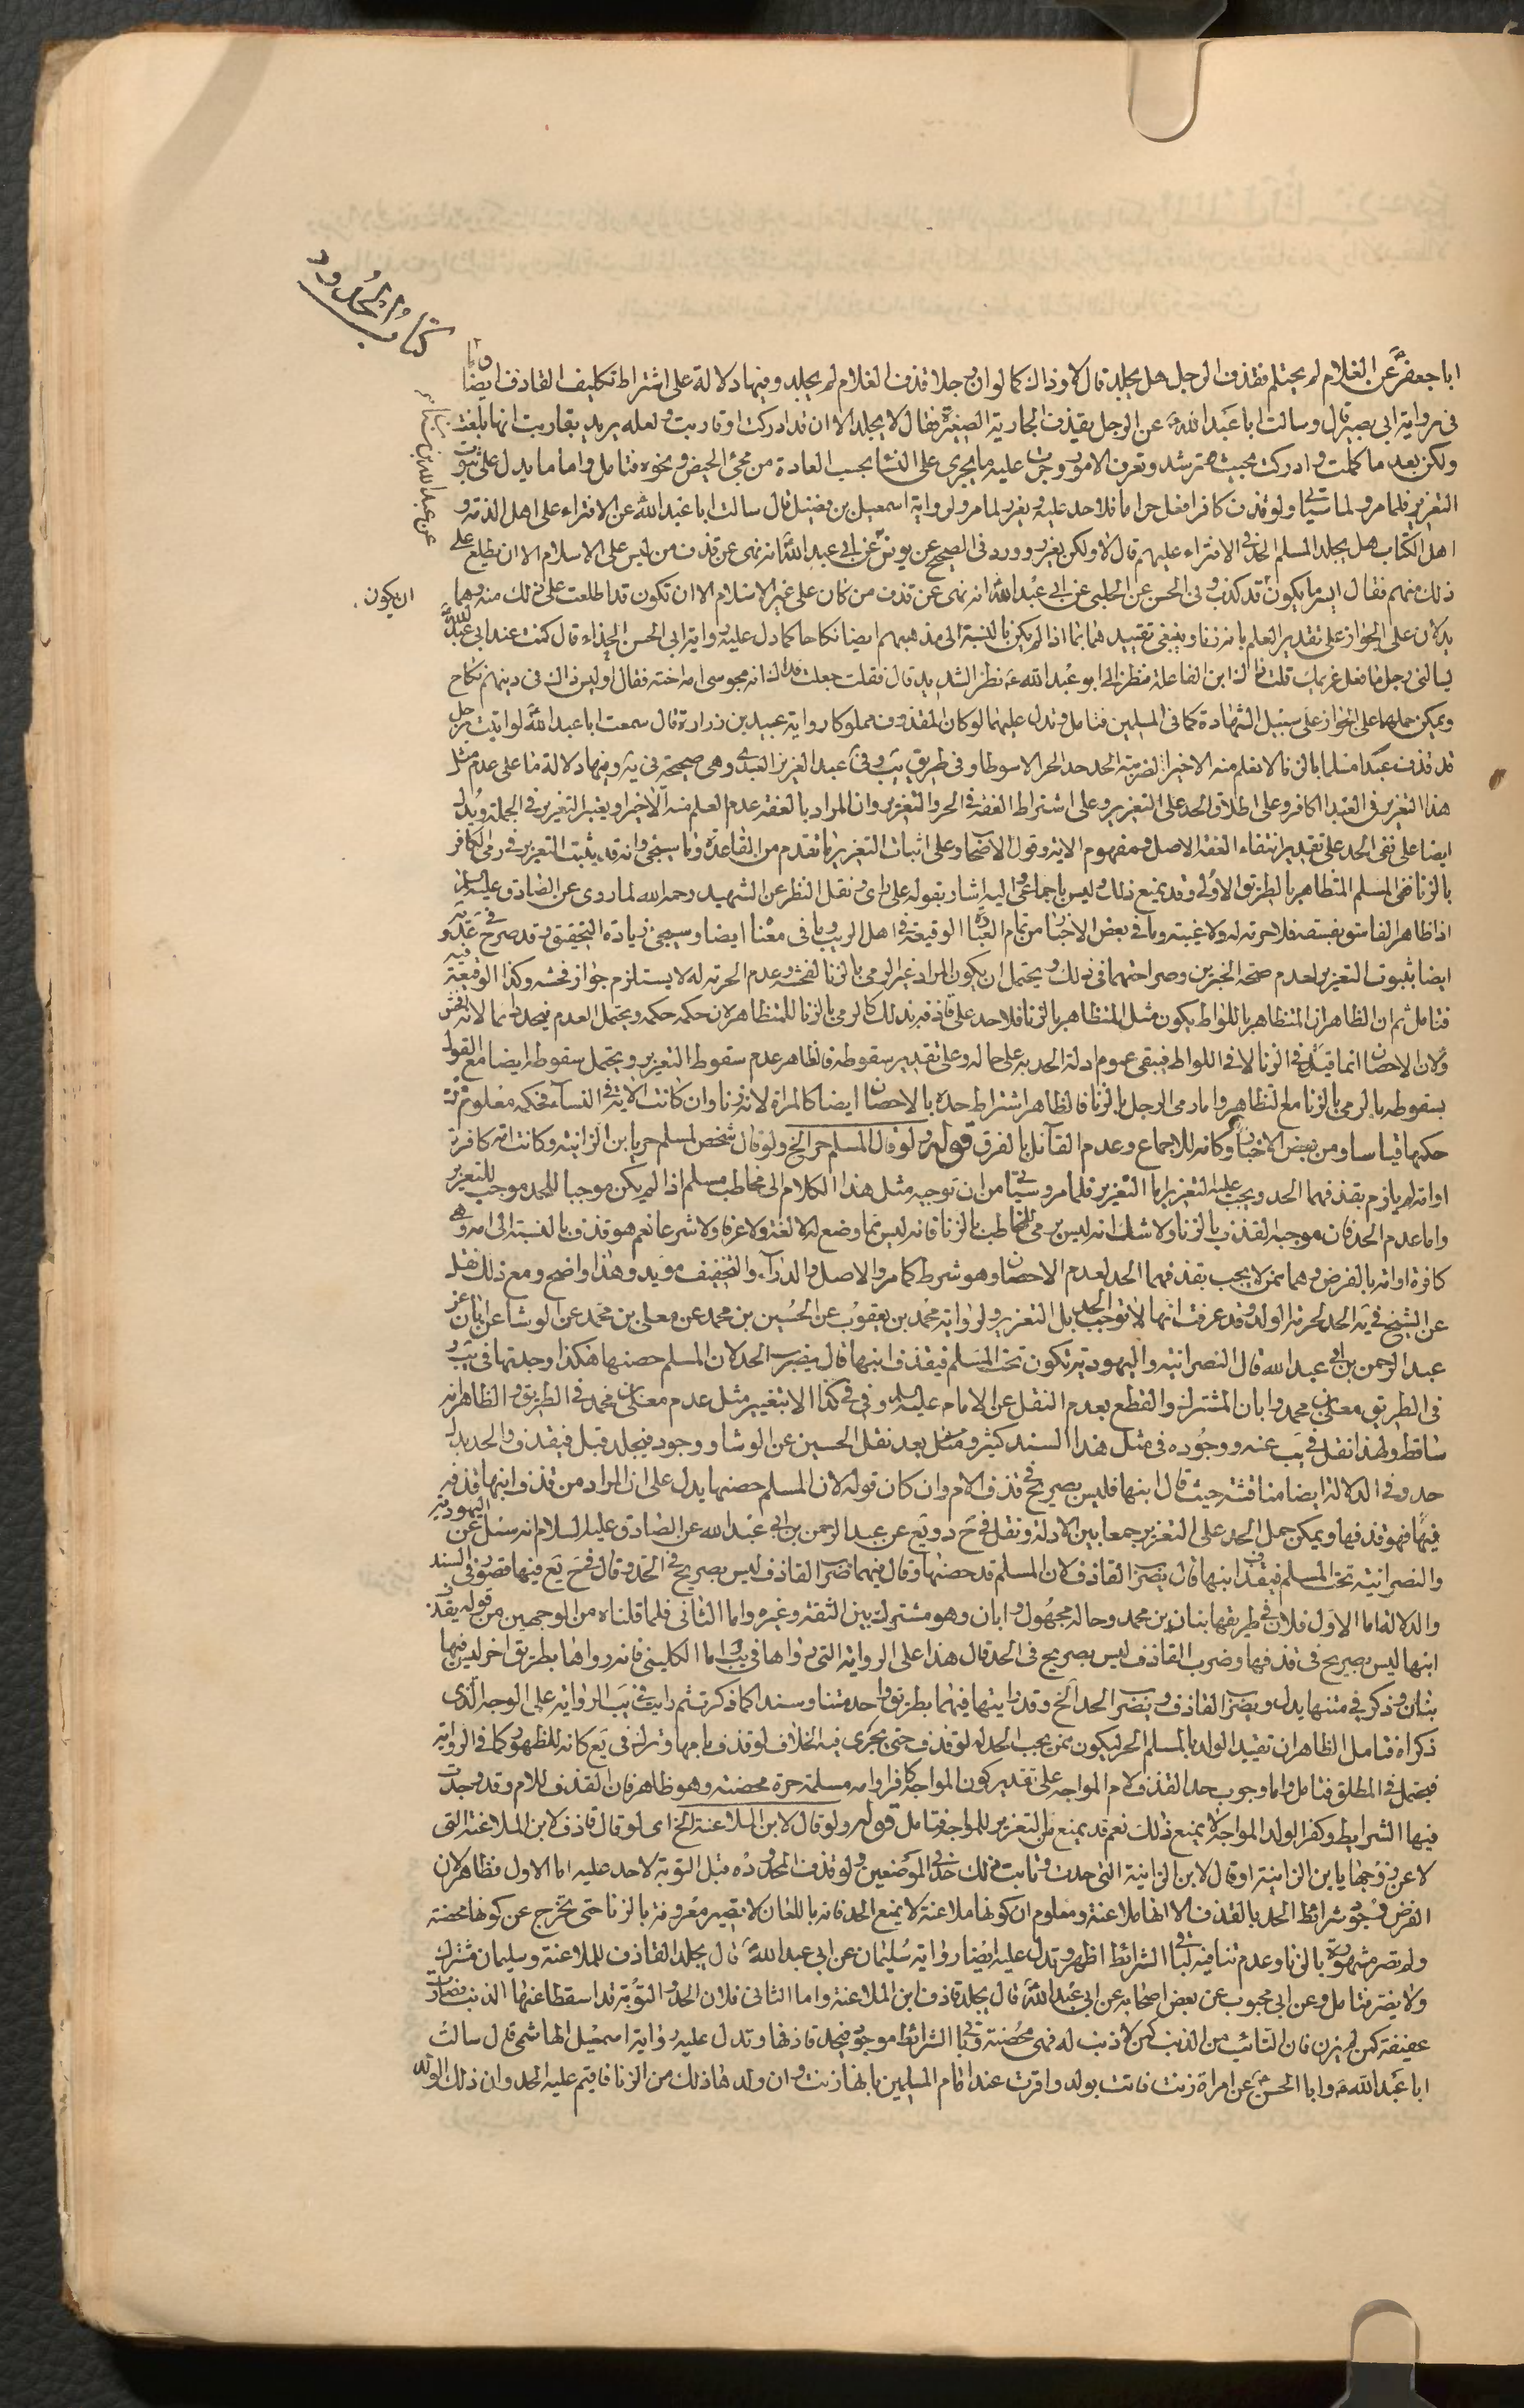 كتاب الحدود
ابا جعفر عن الغلام لم يحتلم فقذف الرجل هل يجلد قال لا وذاك كما لو ان رجلا قذف الغلام لم يجلد وفيها دلالة على اشتراط تكليف القاذف ايضا
فى رواية ابى بصير قال وسالت ابا عبد الله عن الرجل يقذف الجارية الصغيرة فقال لا يجلد الا ان قد ادركت او قاربت ولعله يريد بقاربت انها بلغت
ولكن بعد ما كملت وادركت بحيث ترشد وتعرف الامور وجرت عليه ما يجرى على النسا بحسب العادة من مجئ الحيض ونحوه فتامل واما ما يدل على ثبوت
التعزير فلما مر ولما سياتى ولو قذف كافرا فعل حراما فلا حد عليه ويعزر لما مر ولرواية اسمعيل بن فضيل قال سالت ابا عبد الله عن الافتراء على اهل الذمة و
اهل الكتاب هل يجلد المسلم الحد فى الافتراء عليهم قال لا ولكن يعزر وورد فى الصحيح عن يونس عن ابى عبد الله انه نهى عن قذف من ليس على الاسلام الا ان يطلع على
عن عبد الله بن سنان
ذلك منهم فقال ايسر ما يكون قد كذب وفى الحسن عن الحلبى عن ابى عبد الله انه نهى عن قذف من كان على غير الاسلام الا ان تكون قد اطلعت على ذلك منه وهما
ان يكون
يدلان على الجواز على تقدير العلم بانه زنا وينبغى تقييدهما بما اذا لم يكن بالنسبة الى مذهبهم ايضا نكاحا كما دل عليه رواية ابى الحسن الحذاء قال كنت عند ابى عبد الله
يسالنى رجل ما فعل غريمك قلت ذاك ابن الفاعلة فنظر الى ابو عبد الله نظر الشديد قال فقلت جعلت فداك انه مجوسى امه اخته فقال او ليس ذاك فى دينهم نكاح
ويمكن حملهما على الجواز على سبيل الشهادة كما فى المسلمين فتامل وتدل عليهما لو كان المقذوف مملوكا رواية عبيد بن زرارة قال سمعت ابا عبد الله لو اتيت برجل
قد قذف عبدا مسلما بالزنا لا نعلم منه الا خيرا لضربته الحد حد الحر الا سوطا وفى طريق يب وفى عبد العزيز العبدى وهى صحيحة فى يه وفيها دلالة ما على عدم مثل
هذا التعزير فى العبد الكافر وعلى اطلاق الحد على التعزير وعلى اشتراط العفة فى الحر والتعزير وان المراد بالعفة عدم العلم منه الا خيرا ويعتبر التعزير فى الجملة ويدل
ايضا على نفى الحد على تقدير انتفاء العفة الاصل ومفهوم الاية وقول الاصحاب وعلى اثبات التعزير ما تقدم من القاعدة وما سيجئ وانه قد يثبت التعزير فى رمى الكافر
بالزنا ففى المسلم المتظاهر بالطريق الاولى وقد يمنع ذلك وليس باجماعى واليه اشار بقوله على راى ونقل النظر عن الشهيد رحمه الله لما روى عن الصادق عليه السلام
اذا ظاهر الفاسق بفسقه فلا حرمة له ولا غيبة وما فى بعض الاخبار من تمام العبادة الوقيعة فى اهل الريب وما فى معنا ايضا وسيجئ زيادة التحقيق وقد صرح فى عد و يه
ايضا بثبوت التعزير لعدم صحة الخبرين وصراحتهما فى ذلك ويحتمل ان يكون المراد غير الرمى بالزنا لفحشه وعدم الحرمة له لا يستلزم جواز فحشه وكذا الوقيعة فيه
فتامل ثم ان الظاهر ان المتظاهر باللواط يكون مثل المتظاهر بالزنا فلا حد على قاذفه بذلك كالرمى بالزنا للمتظاهر لان حكمه حكمه ويحتمل العدم فيحد تاما لانه افحش
ولان الاحصان انما قيل فى الزنا لا فى اللواط فيبقى عموم ادلة الحد به على حاله وعلى تقدير سقوطه فالظاهر عدم سقوط التعزير ويحتمل سقوطه ايضا مع القول
بسقوطه بالرمى بالزنا مع التظاهر واما رمى الرجل بالزنا فالظاهر اشتراط حده بالاحصان ايضا كالمراة لانه زنا وان كانت الاية فى النساء فحكمه معلوم من
حكمها قياسا ومن بعض الاخبار وكانه للاجماع وعدم القائل بالفرق قوله ولو قال المسلم حر الخ ولو قال شخص لمسلم حر يا ابن الزانية وكانت امه كافرة
او امة لم يلزم بقذفهما الحد ويجب عليه التعزير اما التعزير فلما مر وسياتى من ان توجيه مثل هذا الكلام الى مخاطب مسلم اذا لم يكن موجبا للحد موجب للتعزير
واما عدم الحد فان موجبه القذف بالزنا ولا شك انه ليس برمى للمخاطب بالزنا فانه ليس مما وضع له لا لغة ولا عرفا ولا شرعا نعم هو قذف بالنسبة الى امه وهى
كافرة او امة بالفرض وهما ممن لا يجب بقذفهما الحد لعدم الاحصان وهو شرط كما مر والاصل والدراء والتخفيف مؤيد وهذا واضح ومع ذلك نقل
عن الشيخ فى يه الحد لحرمة الولد وقد عرفت انها لا توجب الحد بل التعزير ولرواية محمد بن يعقوب عن الحسين بن محمد عن معلى بن محمد عن الوشا عن ابان عن
عبد الرحمن بن ابى عبد الله قال النصرانية واليهودية تكون تحت المسلم فيقذف ابنها قال يضرب الحد لان المسلم حصنها هكذا وجدتها فى يب و
فى الطريق معلى بن محمد وابان المشترك والقطع بعدم النقل عن الامام عليه السلم وفى فى كذا الا بتغيير مثل عدم معلى بن محمد فى الطريق والظاهر انه
ساقط ولهذا نقل فى يب عنه ووجوده فى مثل هذا السند كثير ومثل بعد نقل الحسين عن الوشا ووجود فيجلد قبل فيقذف والحد بدل
حد وفى الدلالة ايضا مناقشة حيث قال ابنها فليس بصريح فى قذف الام وان كان قوله لان المسلم حصنها يدل على ان المراد من قذف ابنها قذفه
فيها فهو قذفها ويمكن حمل الحد على التعزير جمعا بين الادلة ونقل فى ح د ويع عن عبد الرحمن بن ابى عبد الله عن الصادق عليه السلام انه سئل عن اليهودية
والنصرانية تحت المسلم فيقذف ابنها قال يضرب القاذف لان المسلم قد حصنها وقال فيهما ضرب القاذف ليس بصريح فى الحد وقال فى ح يع فيها قصور فى السند
والدلالة اما الاول فلان فى طريقها بنان بن محمد وحاله مجهول وابان وهو مشترك بين الثقة وغيره واما الثانى فلما قلناه من الوجهين من قوله يقذف
ابنها ليس بصريح فى قذفها وضرب القاذف ليس بصريح فى الحد قال هذا على الرواية التى رواها فى يب واما الكلينى فانه رواها بطريق اخر ليس فيها
بنان وذكر فى متنها بدل ويضرب القاذف ويضرب الحد الخ وقد رايتها فيهما بطريق واحد متنا وسندا كما ذكرته ثم رايت فى يب الرواية على الوجه الذى
ذكراه فتامل الظاهر ان تقييد الولد بالمسلم الحر ليكون ممن يجب الحد له لو قذف حتى يجرى فيه الخلاف لو قذف بامها وترك فى يع كانه للظهور كما فى الرواية
فيحتمل فى المطلق فتامل واما وجوب حد القذف لام المواجه على تقدير كون المواجه كافرا وامه مسلمة حرة محصنة وهو ظاهر فان القذف للام وقد وجدت
فيها الشرايط وكفر الولد المواجه لا يمنع ذلك نعم قد يمنع من التعزير للمواجه فتامل قوله ولو قال لابن الملاعنة الخ اى لو قال قاذف لابن الملاعنة التى
لاعن زوجها يا ابن الزانية او قال لابن الزانية التى حدت وتابت ذلك حد فى الموضعين ولو قذف المحدودة قبل التوبة لا حد عليه اما الاول فظاهر لان
الفرض وجود شرائط الحد بالقذف الا انها ملاعنة ومعلوم ان كونها ملاعنة لا يمنع الحد فانه باللعان لا تصير معروفة بالزنا حتى تخرج عن كونها محصنة
ولم تصر مشهورة بالزنا وعدم تنافيه لباقى الشرائط اظهر وتدل عليه ايضا رواية سليمان عن ابى عبد الله قال يجلد القاذف للملاعنة وسليمان مشترك
ولا يضر فتامل وعن ابى محبوب عن بعض اصحابه عن ابى عبد الله قال يجلد قاذف ابن الملاعنة واما الثانى فلان الحد والتوبة قد اسقطا عنها الذنب فصارت
عفيفة كمن لم يزن فان التائب من الذنب كمن لا ذنب له فهى محصنة وباقى الشرائط موجود فيحد قاذفها وتدل عليه رواية اسمعيل الهاشمى قال سالت
ابا عبد الله وابا الحسن عن امراة زنت فاتت بولد واقرت عند امام المسلمين بانها زنت وان ولدها ذلك من الزنا فاقيم عليه الحد وان ذلك الولد